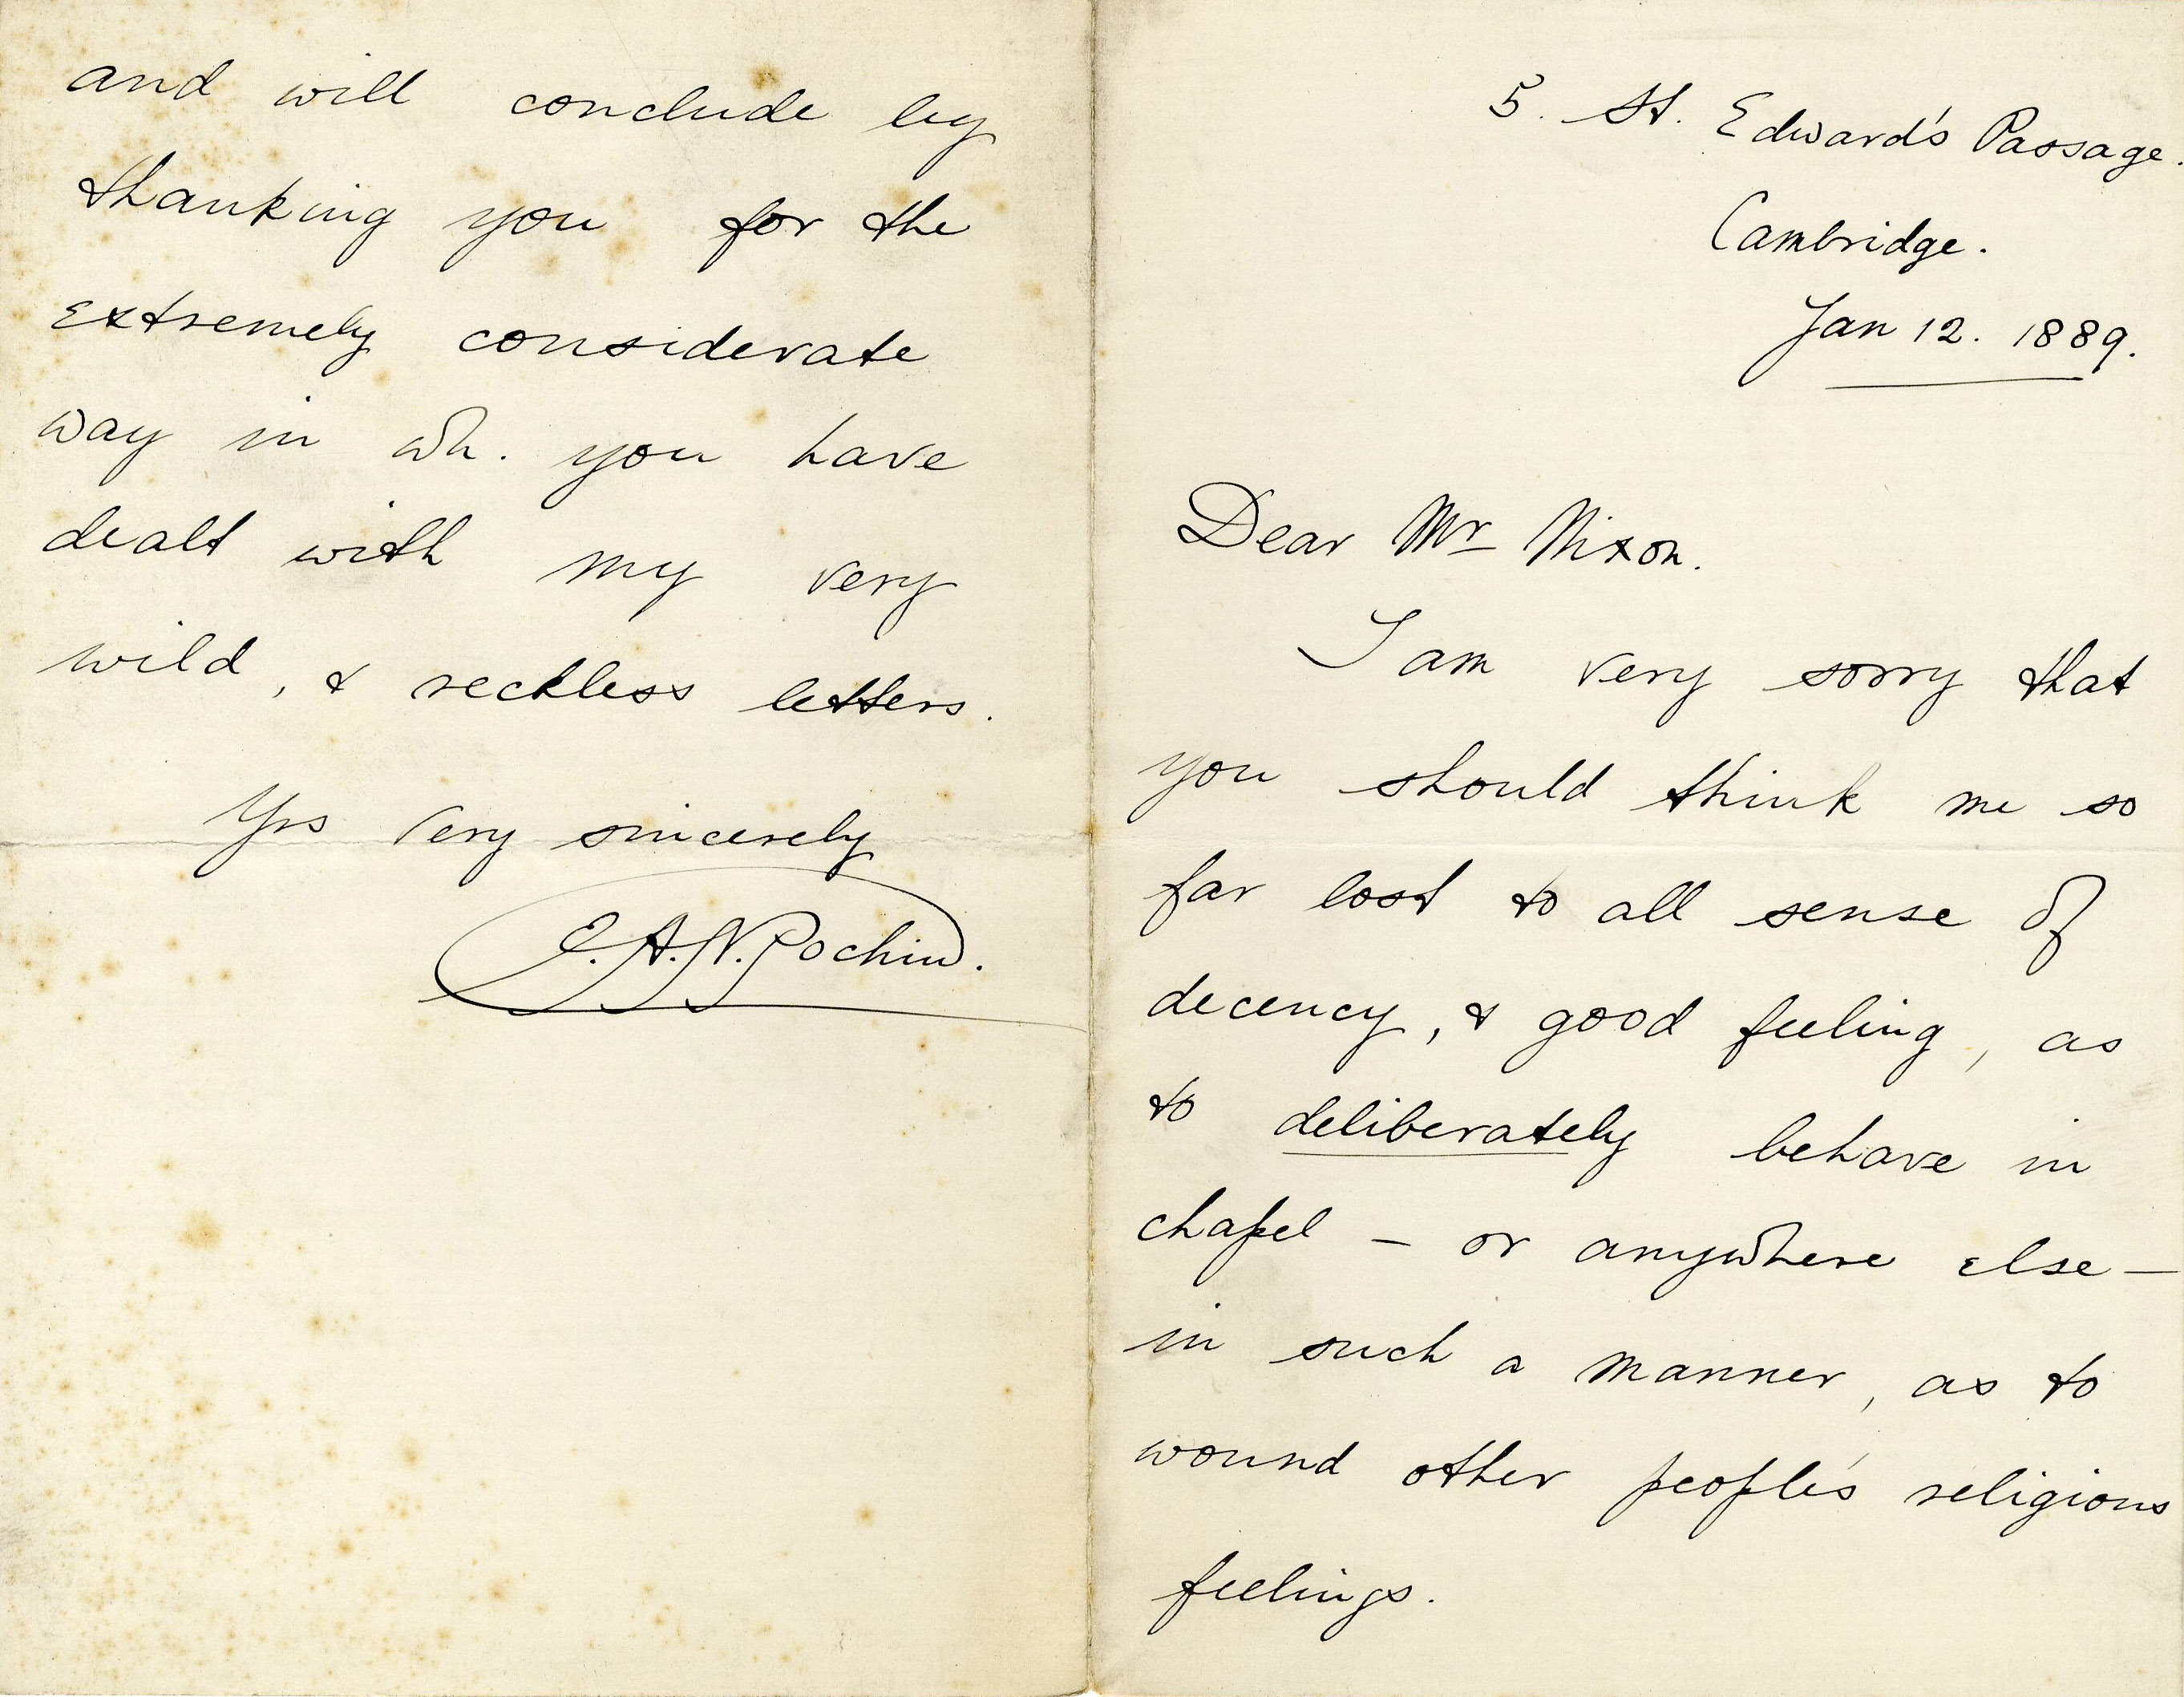 5. St. Edward's Passage.
Cambridge.
Jan 12. 1889.
Dear Mr Nixon.
I am very sorry that
you should think me so
far lost to all sense of
decency, & good feeling, as
to deliberately behave in
chapel – or anywhere else –
in such a manner, as to
wound other people's religious
feelings.
and will conclude by
thanking you for the
extremely considerate
way in wh. you have
dealt with my very
wild, & reckless letters.
Yrs very sincerely
E.A.N. Pochin.